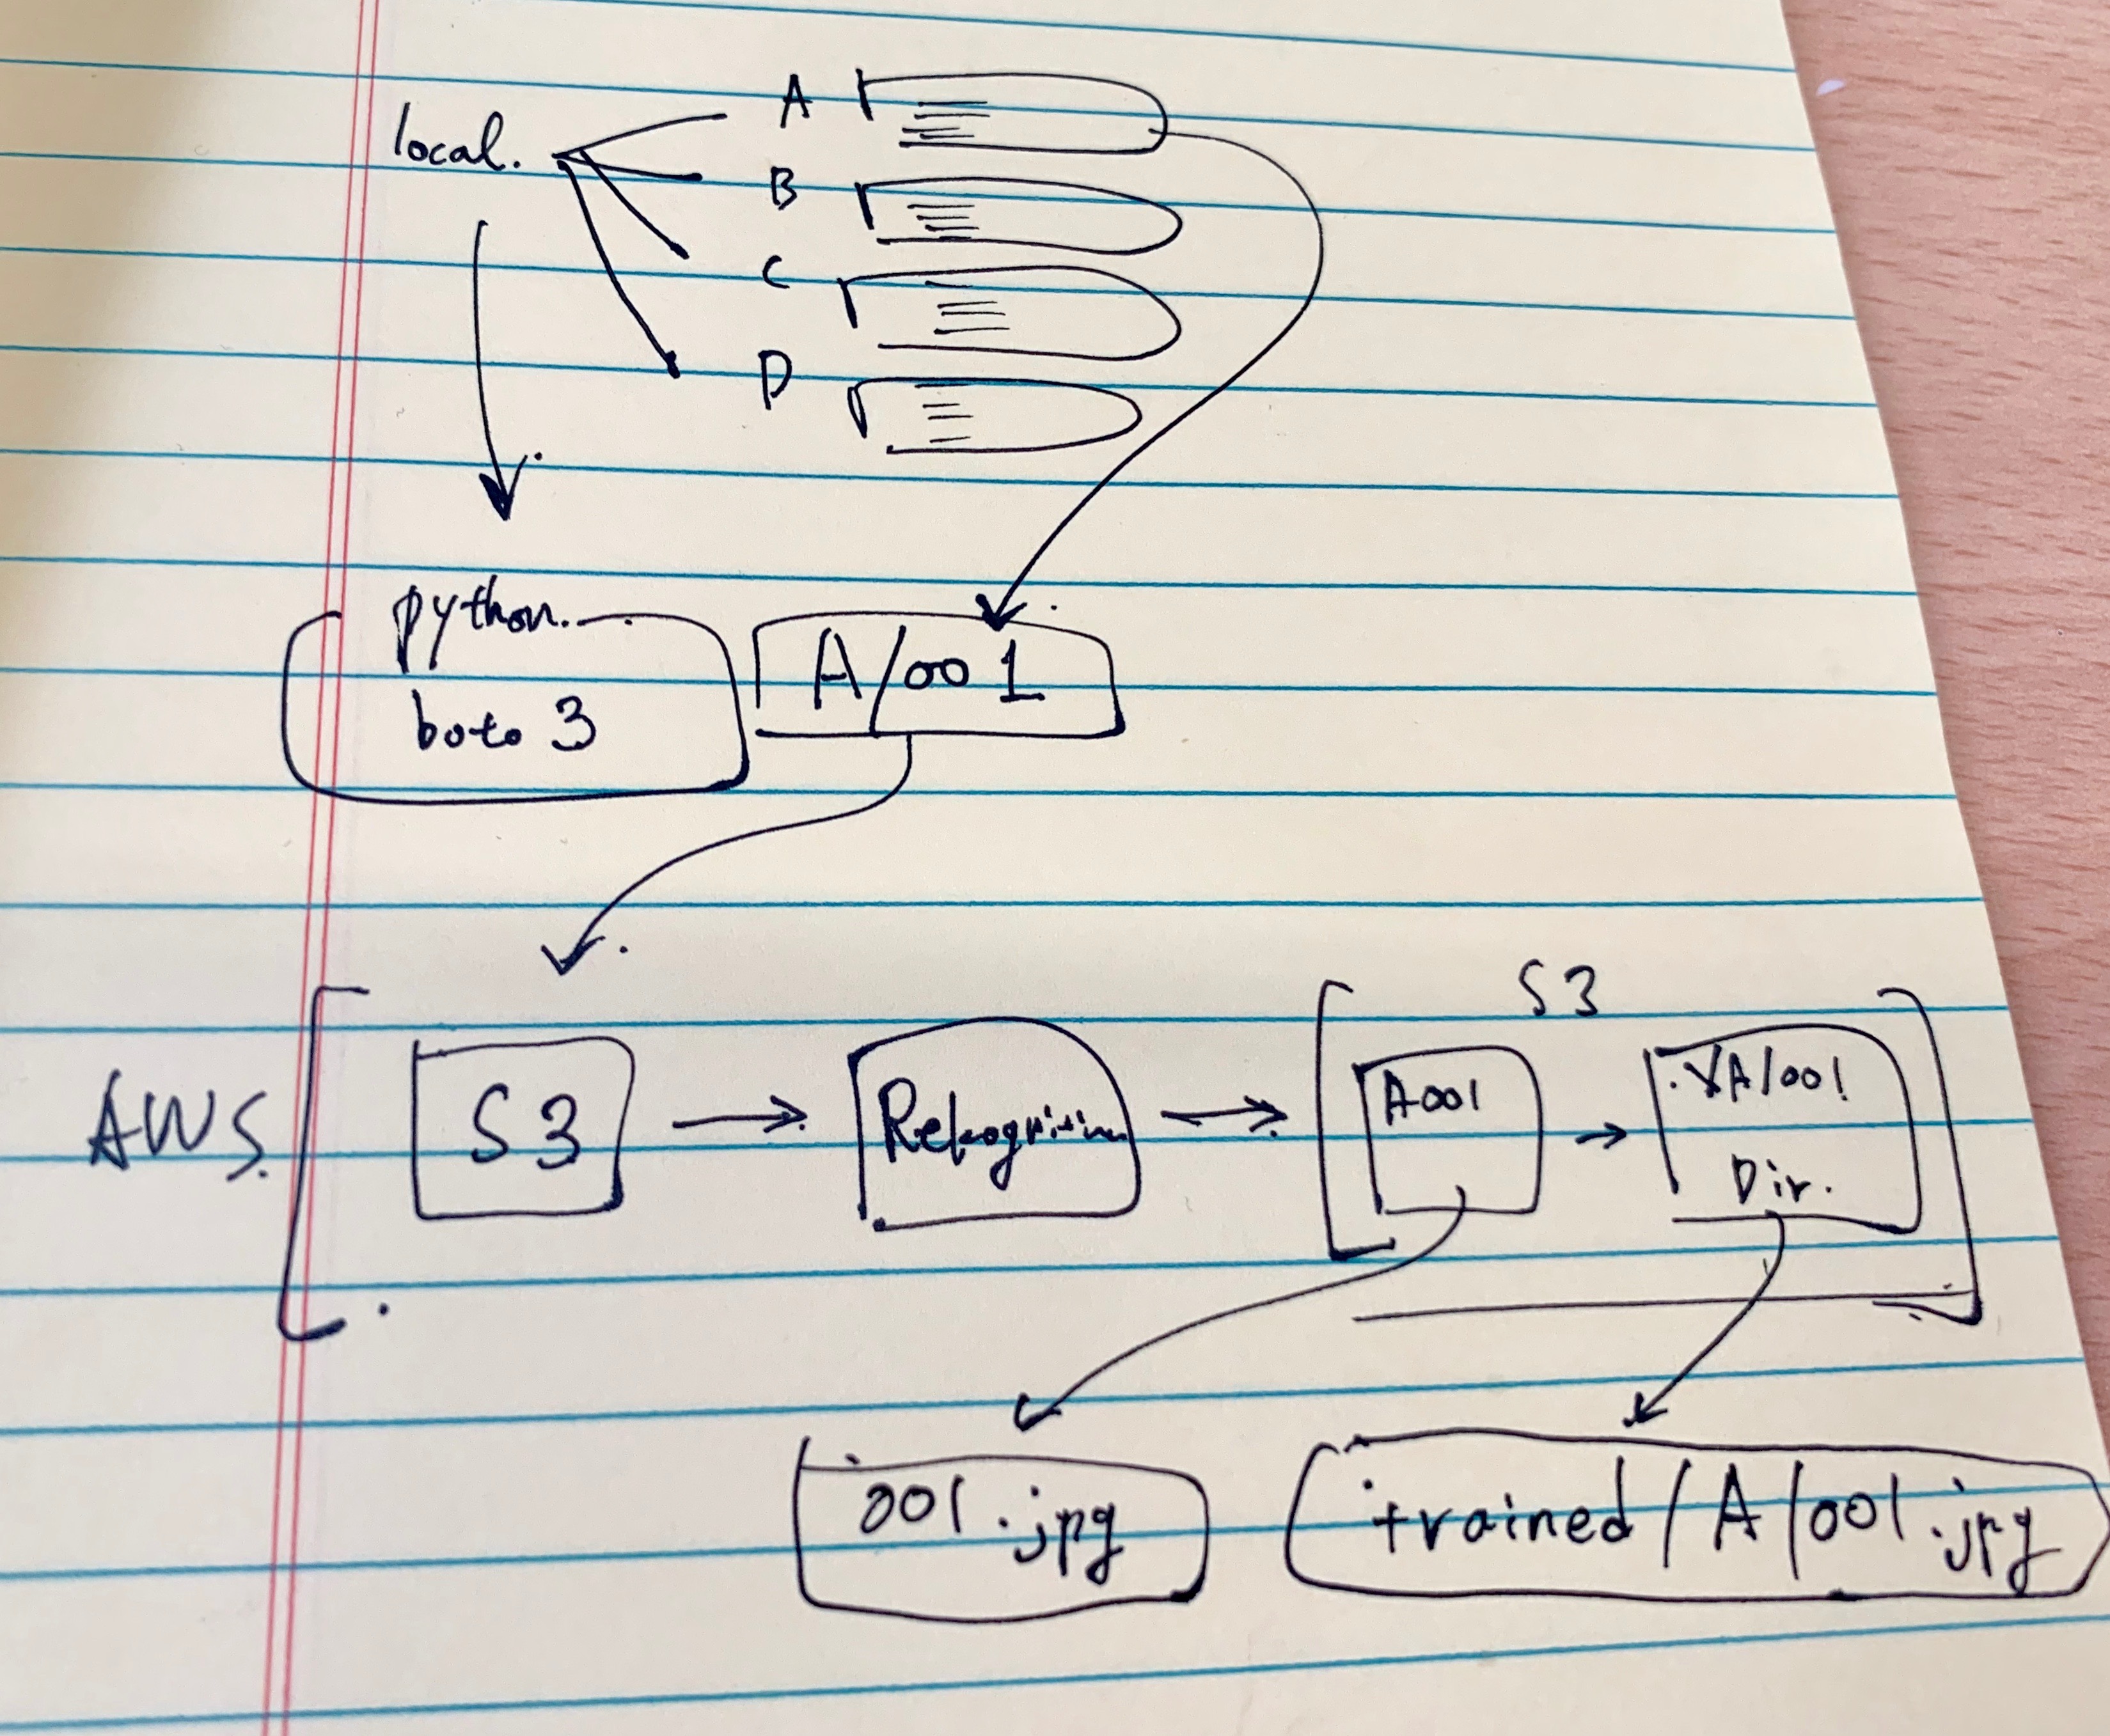 local.
A
B
C
D
python.
boto 3
A/001
AWS.
S3
Rekognition
S3
A001
A/001
Dir.
001.jpg
trained/A/001.jpg